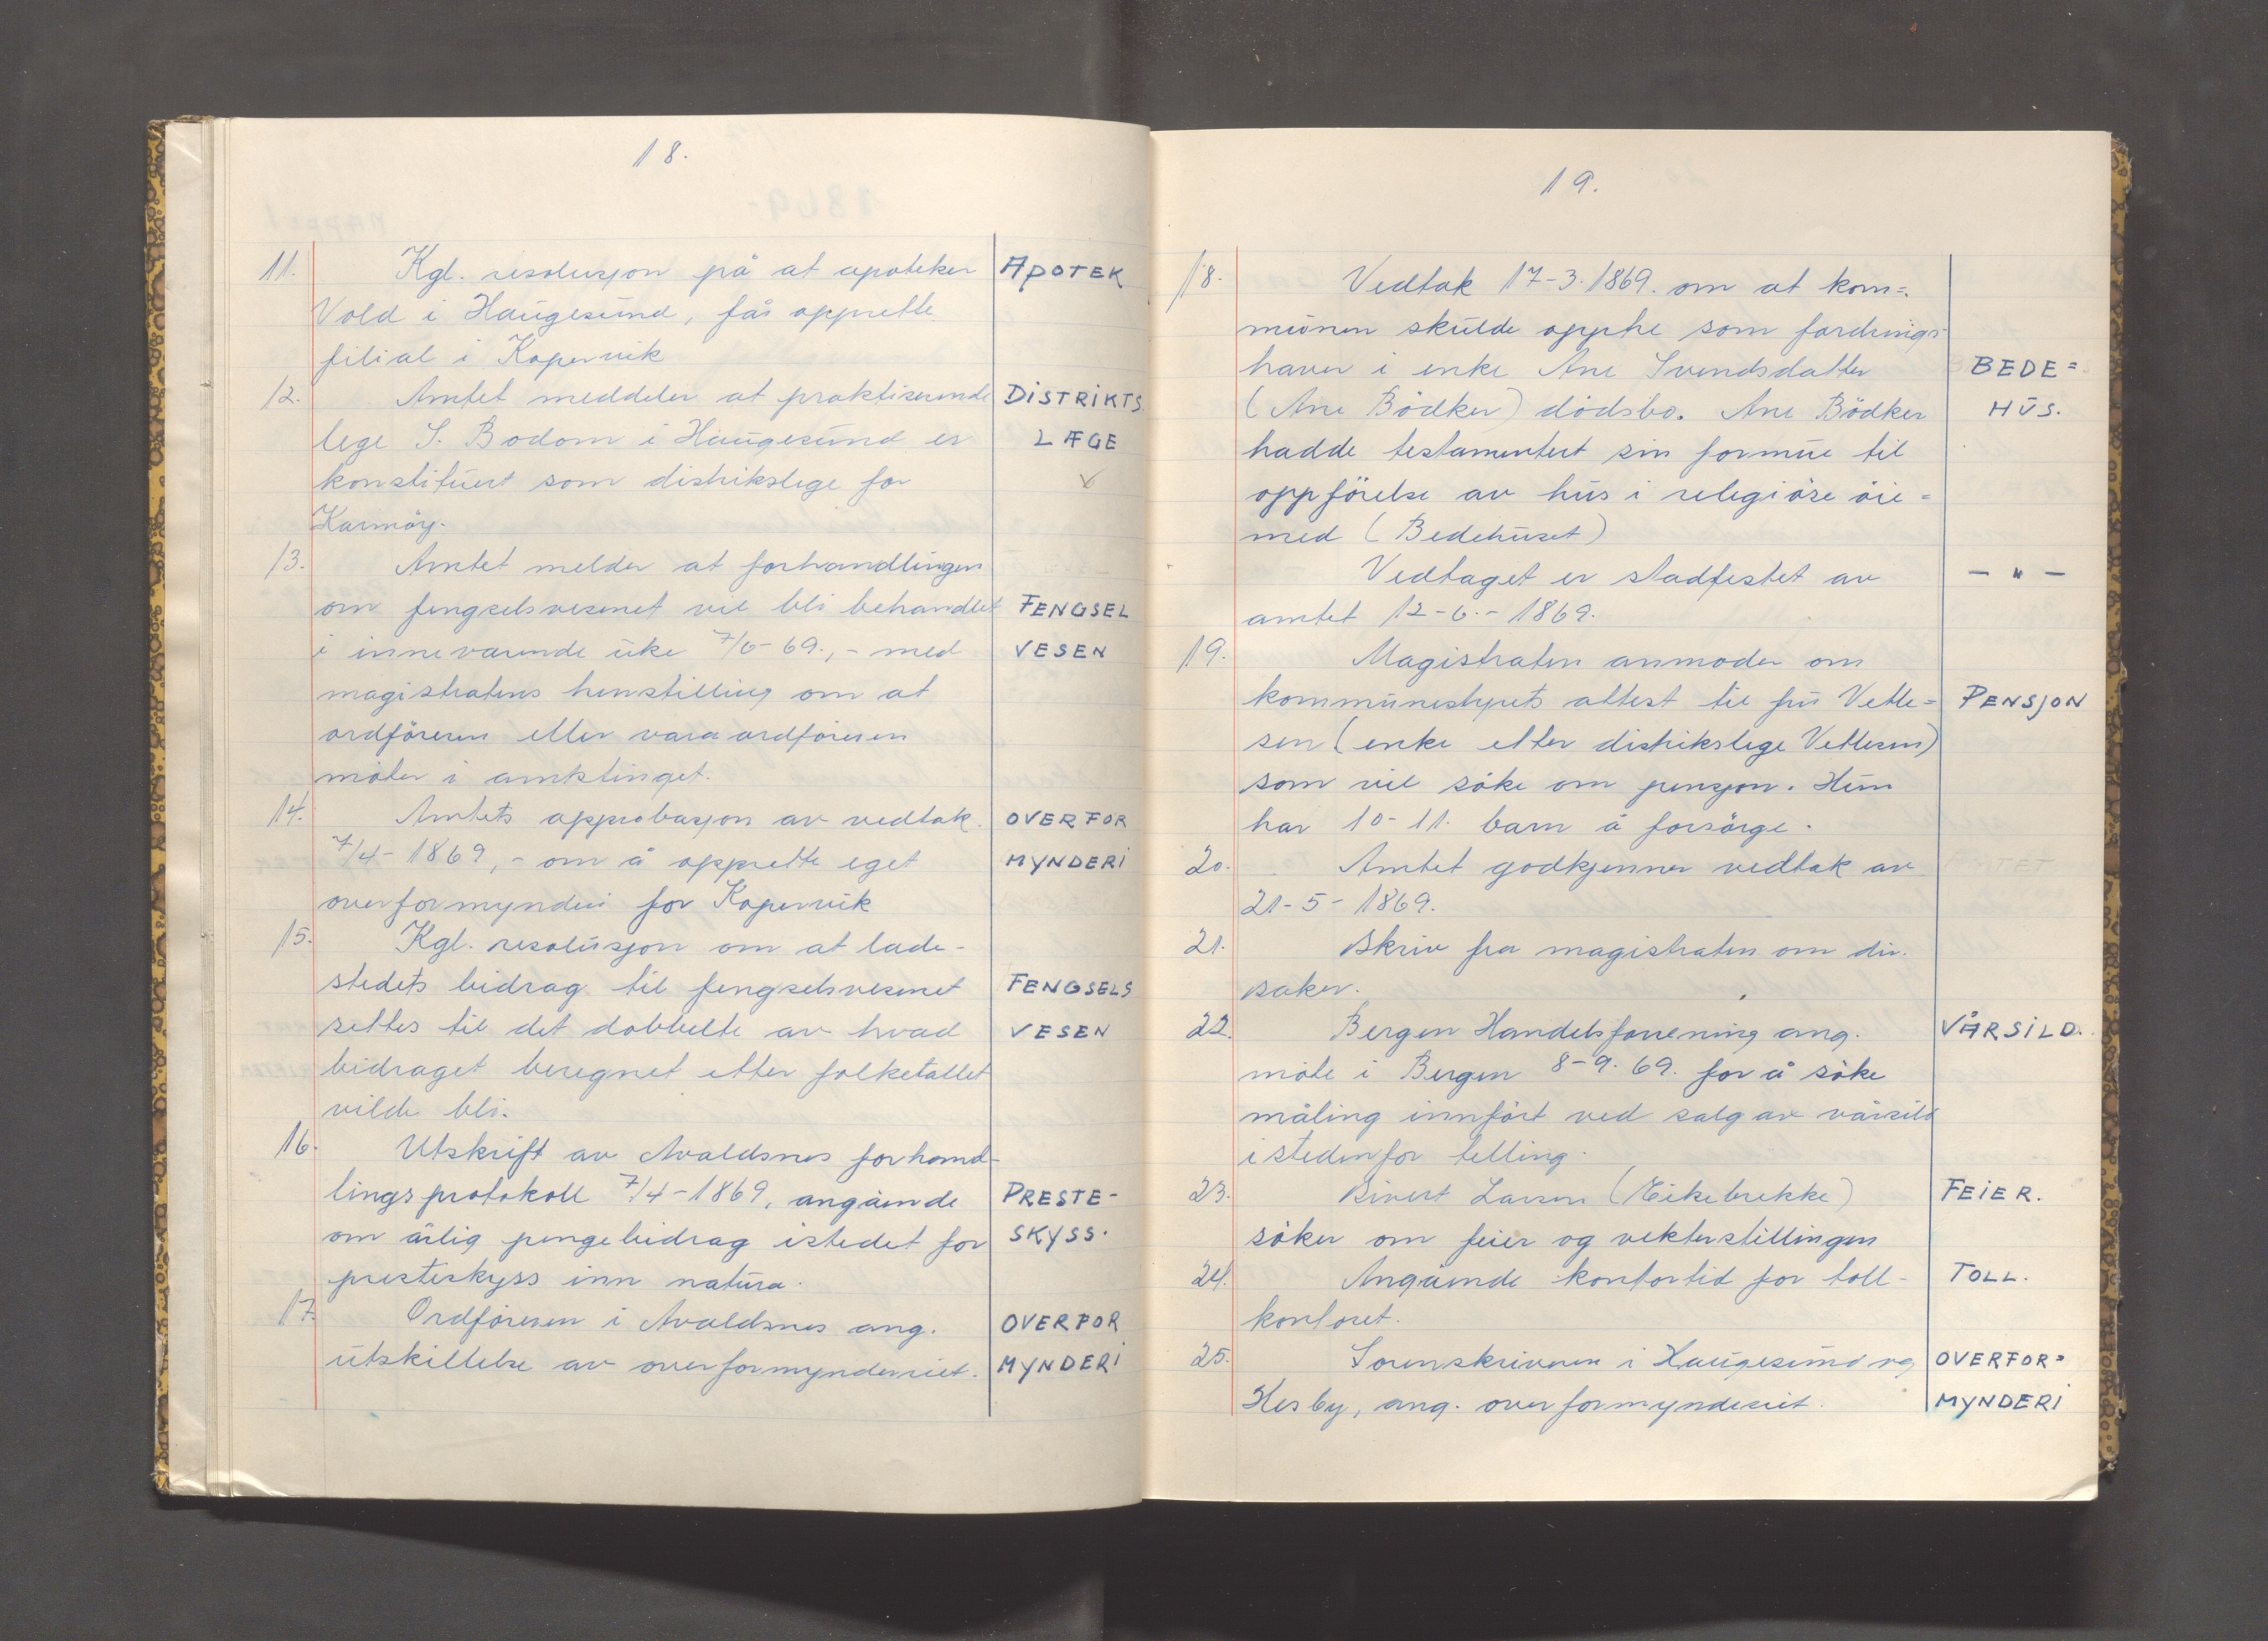 18.
11. Kgl. resolusjon på at apoteker APOTEK
Vold i Haugesund, får opprette
filial i Kopervik
12. Amtet meddeler at praktiserende DISTRIKTS
lege S. Bodom i Haugesund er LÆGE
konstituert som distrikslege for
Karmöy.
13. Amtet melder at forhandlingen
om fengselsvesenet vil bli behandlet FENGSEL
i innevarende uke 7/6-69., - med VESEN
magistratens henstilling om at
ordföreren eller varaordföreren
möter i amtstinget.
14. Amtets approbasjon av vedtak OVERFOR
7/4-1869, - om å opprette eget MYNDERI
overformynderi for Kopervik
15. Kgl. resolusjon om at lade-
stedets bidrag til fengselsvesenet FENGSELS
settes til det dobbelte av hvad VESEN
bidraget beregnet etter folketallet
vilde bli.
16. Utskrift av Avaldsnes forhand-
lingsprotokoll 7/4-1869, angående PRESTE-
om årlig pengebidrag istedet for SKYSS.
presteskyss inn natura.
17. Ordföreren i Avaldsnes ang. OVERFOR
utskillelse av overformynderiet. MYNDERI
19.
18. Vedtak 17-3. 1869. om at kom=
munen skulde opphe som fordrings-
haver i enke Ane Svendsdatter BEDE=
(Ane Bödker) dödsbo. Ane Bödker HUS.
hadde testamentert sin formue til
oppförelse av hus i religiöse öie=
med (Bedehuset)
Vedtaget er stadfestet av — " —
amtet 12-6.-1869.
19. Magistraten anmoder om
kommunestyrets attest til fru Vetle= PENSJON
sen (enke etter distrikslege Vetlesen)
som vil söke om pensjon. Hun
har 10-11. barn å forsörge.
20. Amtet godkjenner vedtak av
21-5-1869.
21. Skriv fra magistraten om div.
saker.
22. Bergen Handelsforrening ang. VÅRSILD.
möte i Bergen 8-9. 69. for å söke
måling innfört ved salg av vårsild
istedenfor telling.
23. Sivert Larsen (Eikebrekke) FEIER.
söker om feier og vekterstillingen
24. Angående kontortid for toll- TOLL.
kontoret.
25. Sorenskriveren i Haugesund og OVERFOR=
Hesby, ang. overformynderiet. MYNDERI